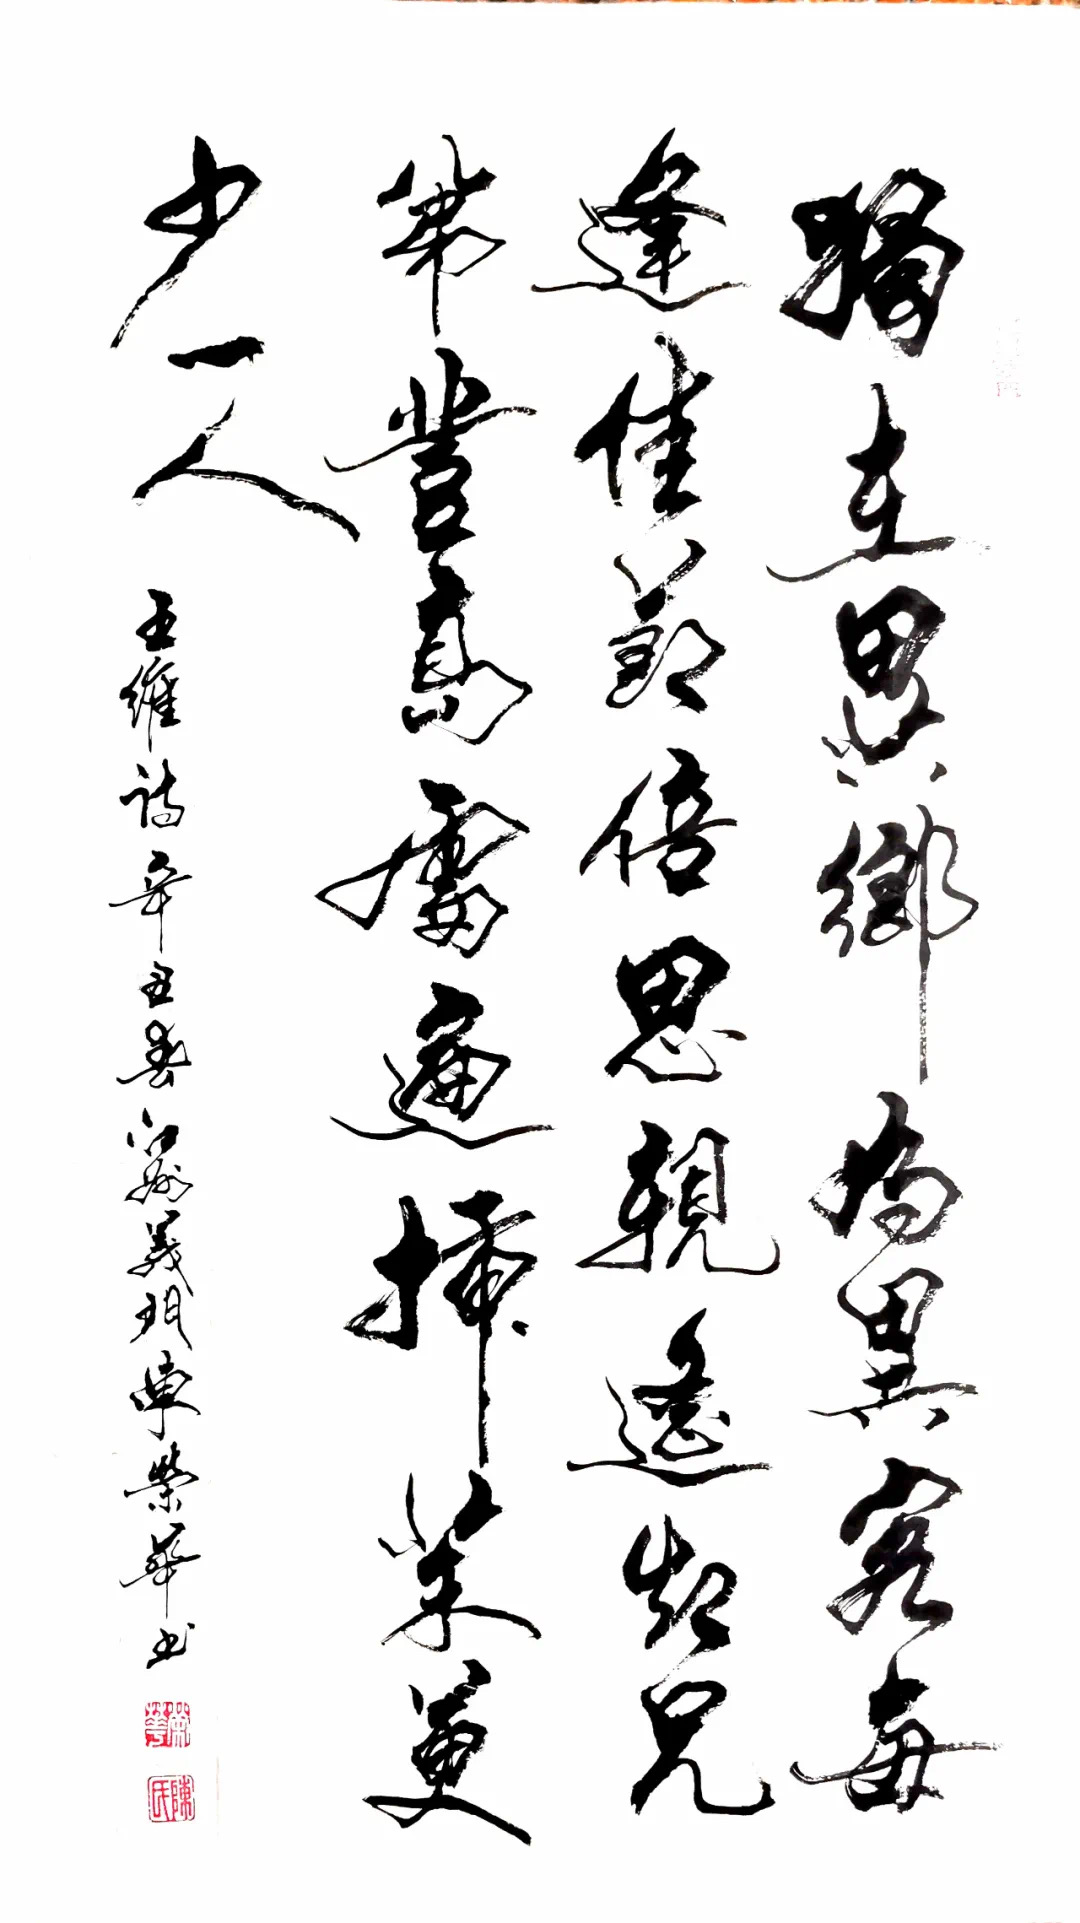 獨在異鄉為異客每
逢佳節倍思親遙知兄
弟登高處遍插茱萸
少一人
王維詩辛丑春江州義門陳榮華書
榮華
陳氏